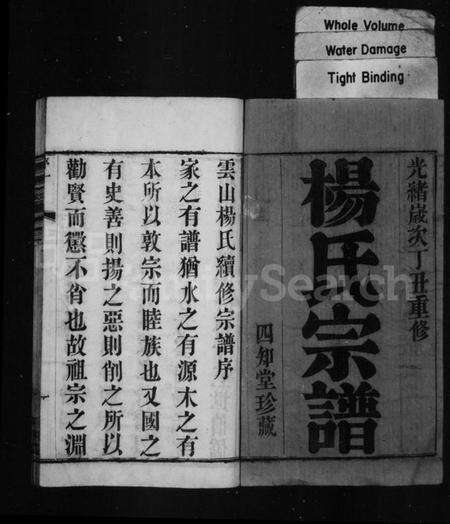 Whole Volume
Water Damage
Tight Binding
光緒歲次丁丑重修
楊氏宗譜
四知堂珍藏
雲山楊氏續修宗譜序
家之有譜猶水之有源木之有
本所以敦宗而睦族也又國之
有史善則揚之惡則削之所以
勸賢而懲不省也故祖宗之淵
FamilySearch